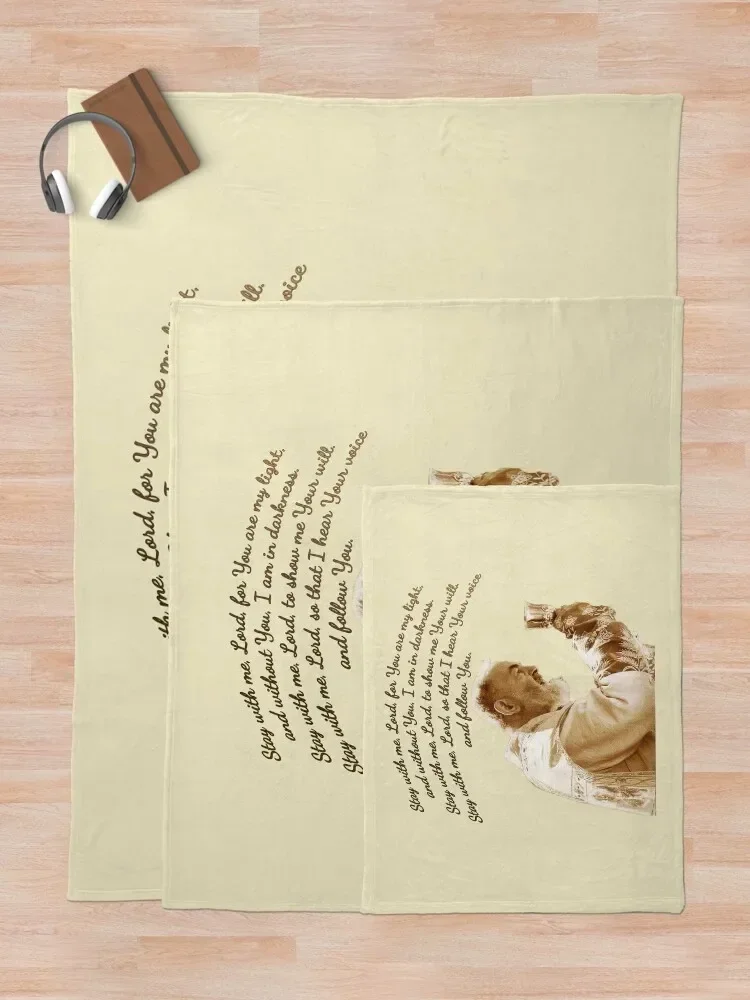 with me, Lord, for You are my
Stay with me, Lord, for You are my light,
and without You, I am in darkness.
Stay with me, Lord, to show me Your will.
Stay with me, Lord, so that I hear Your voice
and follow You.
Stay with me, Lord, for You are my light,
and without You, I am in darkness.
Stay with me, Lord, to show me Your will.
Stay with me, Lord, so that I hear Your voice
and follow You.